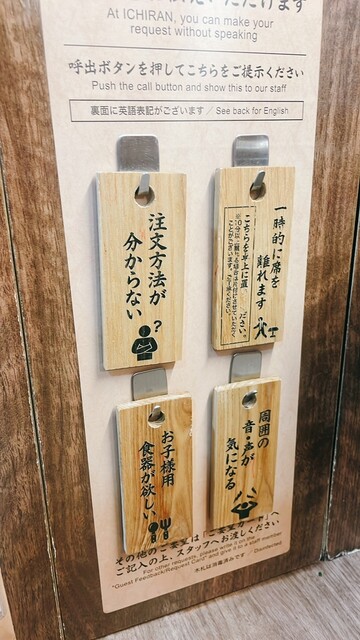 いただけます
At ICHIRAN, you can make your
request without speaking
呼出ボタンを押してこちらをご提示ください
Push the call button and show this to our staff
裏面に英語表記がございます / See back for English
注文方法が
分からない
?
一時的に席を
離れます
こちらを卓上に置
ださい。
お子様用
食器が欲しい
周囲の
音・声が
気になる
その他のご要望は「ご要望カード」へ
ご記入の上、スタッフへお渡しください
For other requests, please write it on the
"Guest Feedback/Request Card" and give it to a staff member.
木札は消毒済みです Disinfected